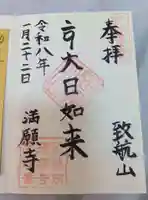 奉拝
致航山
大日如来
令和八年
一月二十二日
満願寺